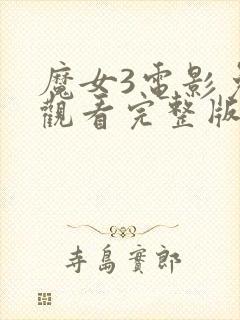 魔女3電影
觀看完整版
寺島實郎